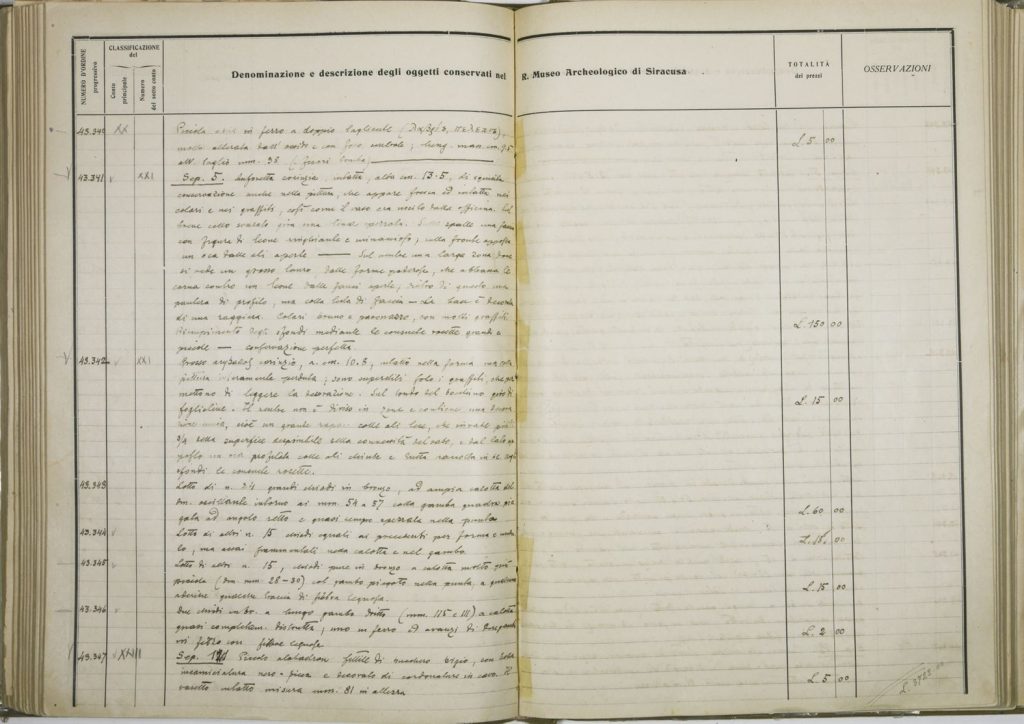 NUMERO D'ORDINE progressivo
CLASSIFICAZIONE del
Conto principale
Numero del sotto conto
Denominazione e descrizione degli oggetti conservati nel R. Museo Archeologico di Siracusa
TOTALITÀ dei prezzi
OSSERVAZIONI
43.340 XX Piccola in ferro a doppio tagliente
molto alterata dall'ossido e con foro L. 5 00
all. taglio mm. 38 (fuori tomba)
43.341 XXI Sep. 5. Anforetta corinzia, intatta, alta cm. 13.5, di squisita
conservazione anche nella pittura, che appare fresca ed intatta nei
colori e nei graffiti, così come il vaso era uscito dalla officina. Sul
breve collo svasato gira una linea spezzata. Sulle spalle una fascia
con figura di leone e minaccioso; sulla fronte opposta
un'oca dalle ali aperte — Sul ventre una larga zona dove
si vede un grosso toro, dalle forme poderose, che abbassa le
corna contro un leone dalle fauci aperte; dietro di questo una
pantera di profilo, ma colla testa di faccia — La base è decorata
di una raggiera. Colori bruno e paonazzo, con molti graffiti. L. 150 00
Riempimento degli sfondi mediante le consuete rosette grandi e
piccole — conservazione perfetta.
43.342 XXI Grosso aryballos corinzio, a. cm. 10.5, intatto nella forma ma colla
pittura interamente perduta; sono superstiti solo i graffiti, che per-
mettono di leggere la decorazione. Sul tondo del bocchino giro di
foglioline. Il ventre non è diviso in zone e contiene una decora- L. 15 00
zione unica, cioè un grande rapace colle ali tese, che invade più di
3/4 della superficie disponibile della convessità del vaso, e dal lato op-
posto un'oca profilata colle ali chiuse e tutta raccolta in sè. Negli
sfondi le consuete rosette.
43.343 Lotto di n. 34 grandi chiodi in bronzo, ad ampia calotta del
dm. oscillante intorno ai mm. 54 a 57 colla gamba quadra pie-
gata ad angolo retto e quasi sempre spezzata nella punta L. 60 00
43.344 Lotto di altri n. 15 chiodi eguali ai precedenti per forma e modu-
lo, ma assai frammentati nella calotta e nel gambo. L. 15. 00
43.345 Lotto di altri n. 15, chiodi pure in bronzo a calotta molto più
piccola (dm. mm. 28-30) col gambo piegato nella punta, a qualcuno
aderisce qualche traccia di fibra legnosa. L. 15 00
43.346 Due chiodi in br. a lungo gambo dritto (mm. 115 e 111) a calotta
quasi completam. distrutta; uno in ferro ed avanzi di
con fibre legnose L. 2 00
43.347 XXIII Sep. Piccolo alabastron fittile di bucchero bigio, con
incamiciatura nero e decorato di cordonature in cavo. Il
vasetto intatto misura mm. 81 in altezza L. 5 00